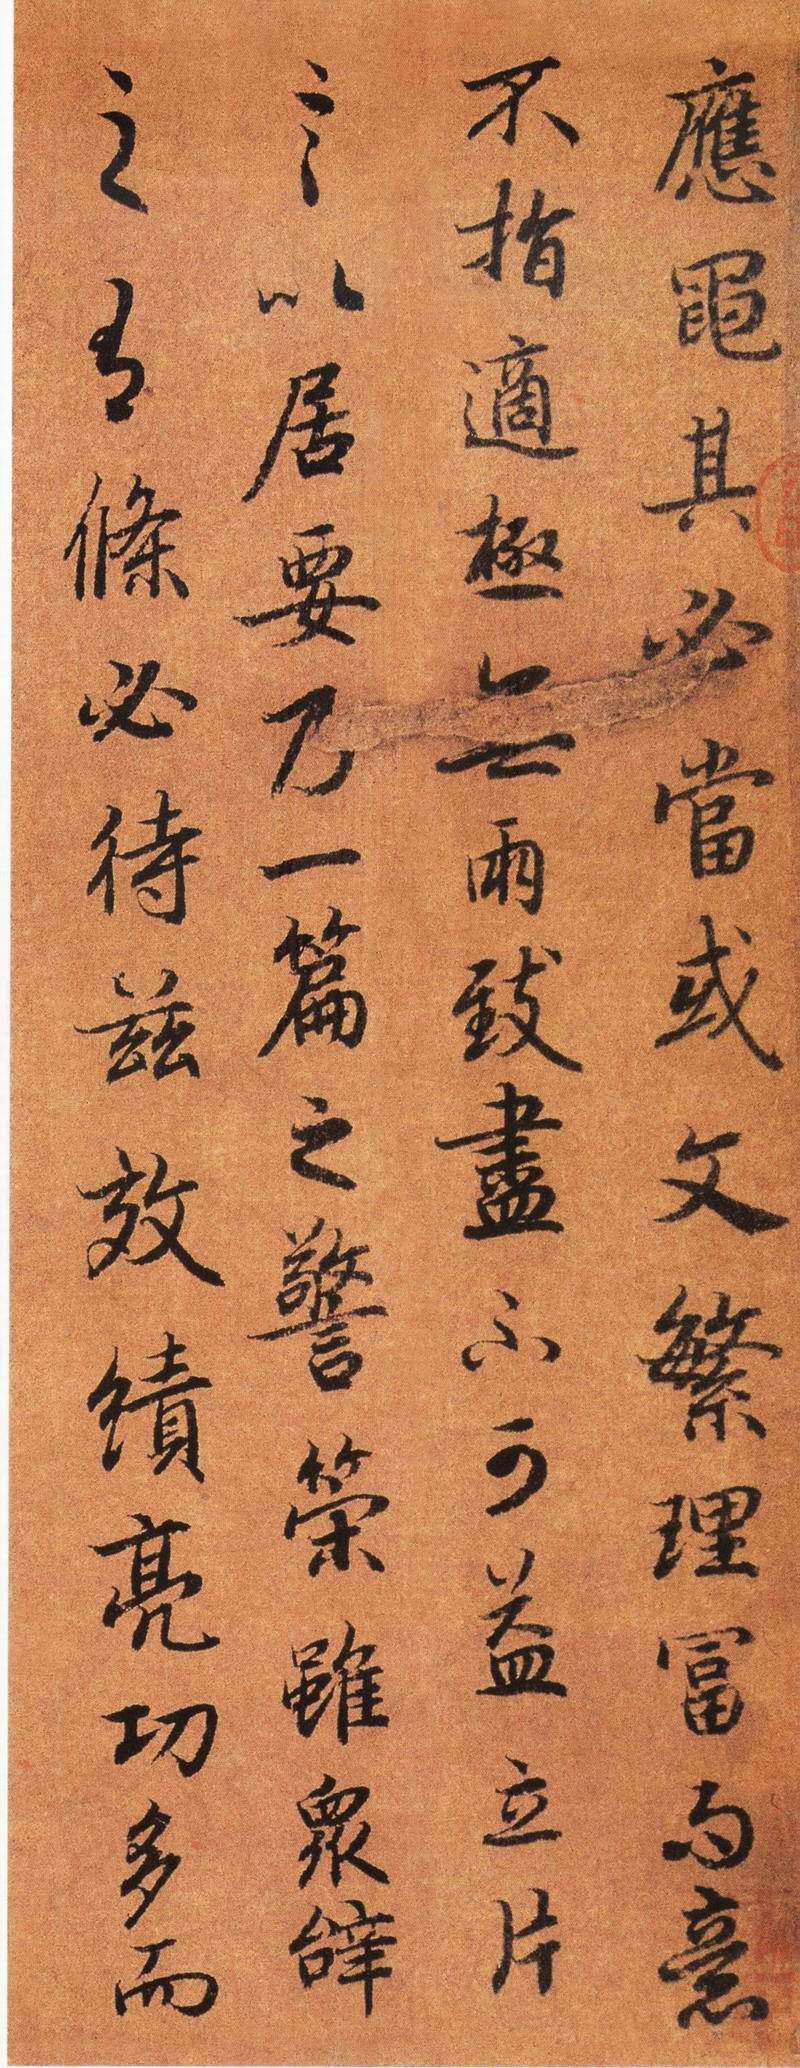 應黽其必當或文繁理富而意
不指適極無兩致盡不可益立片
言以居要乃一篇之警策雖眾辭
之有條必待茲效績亮功多而